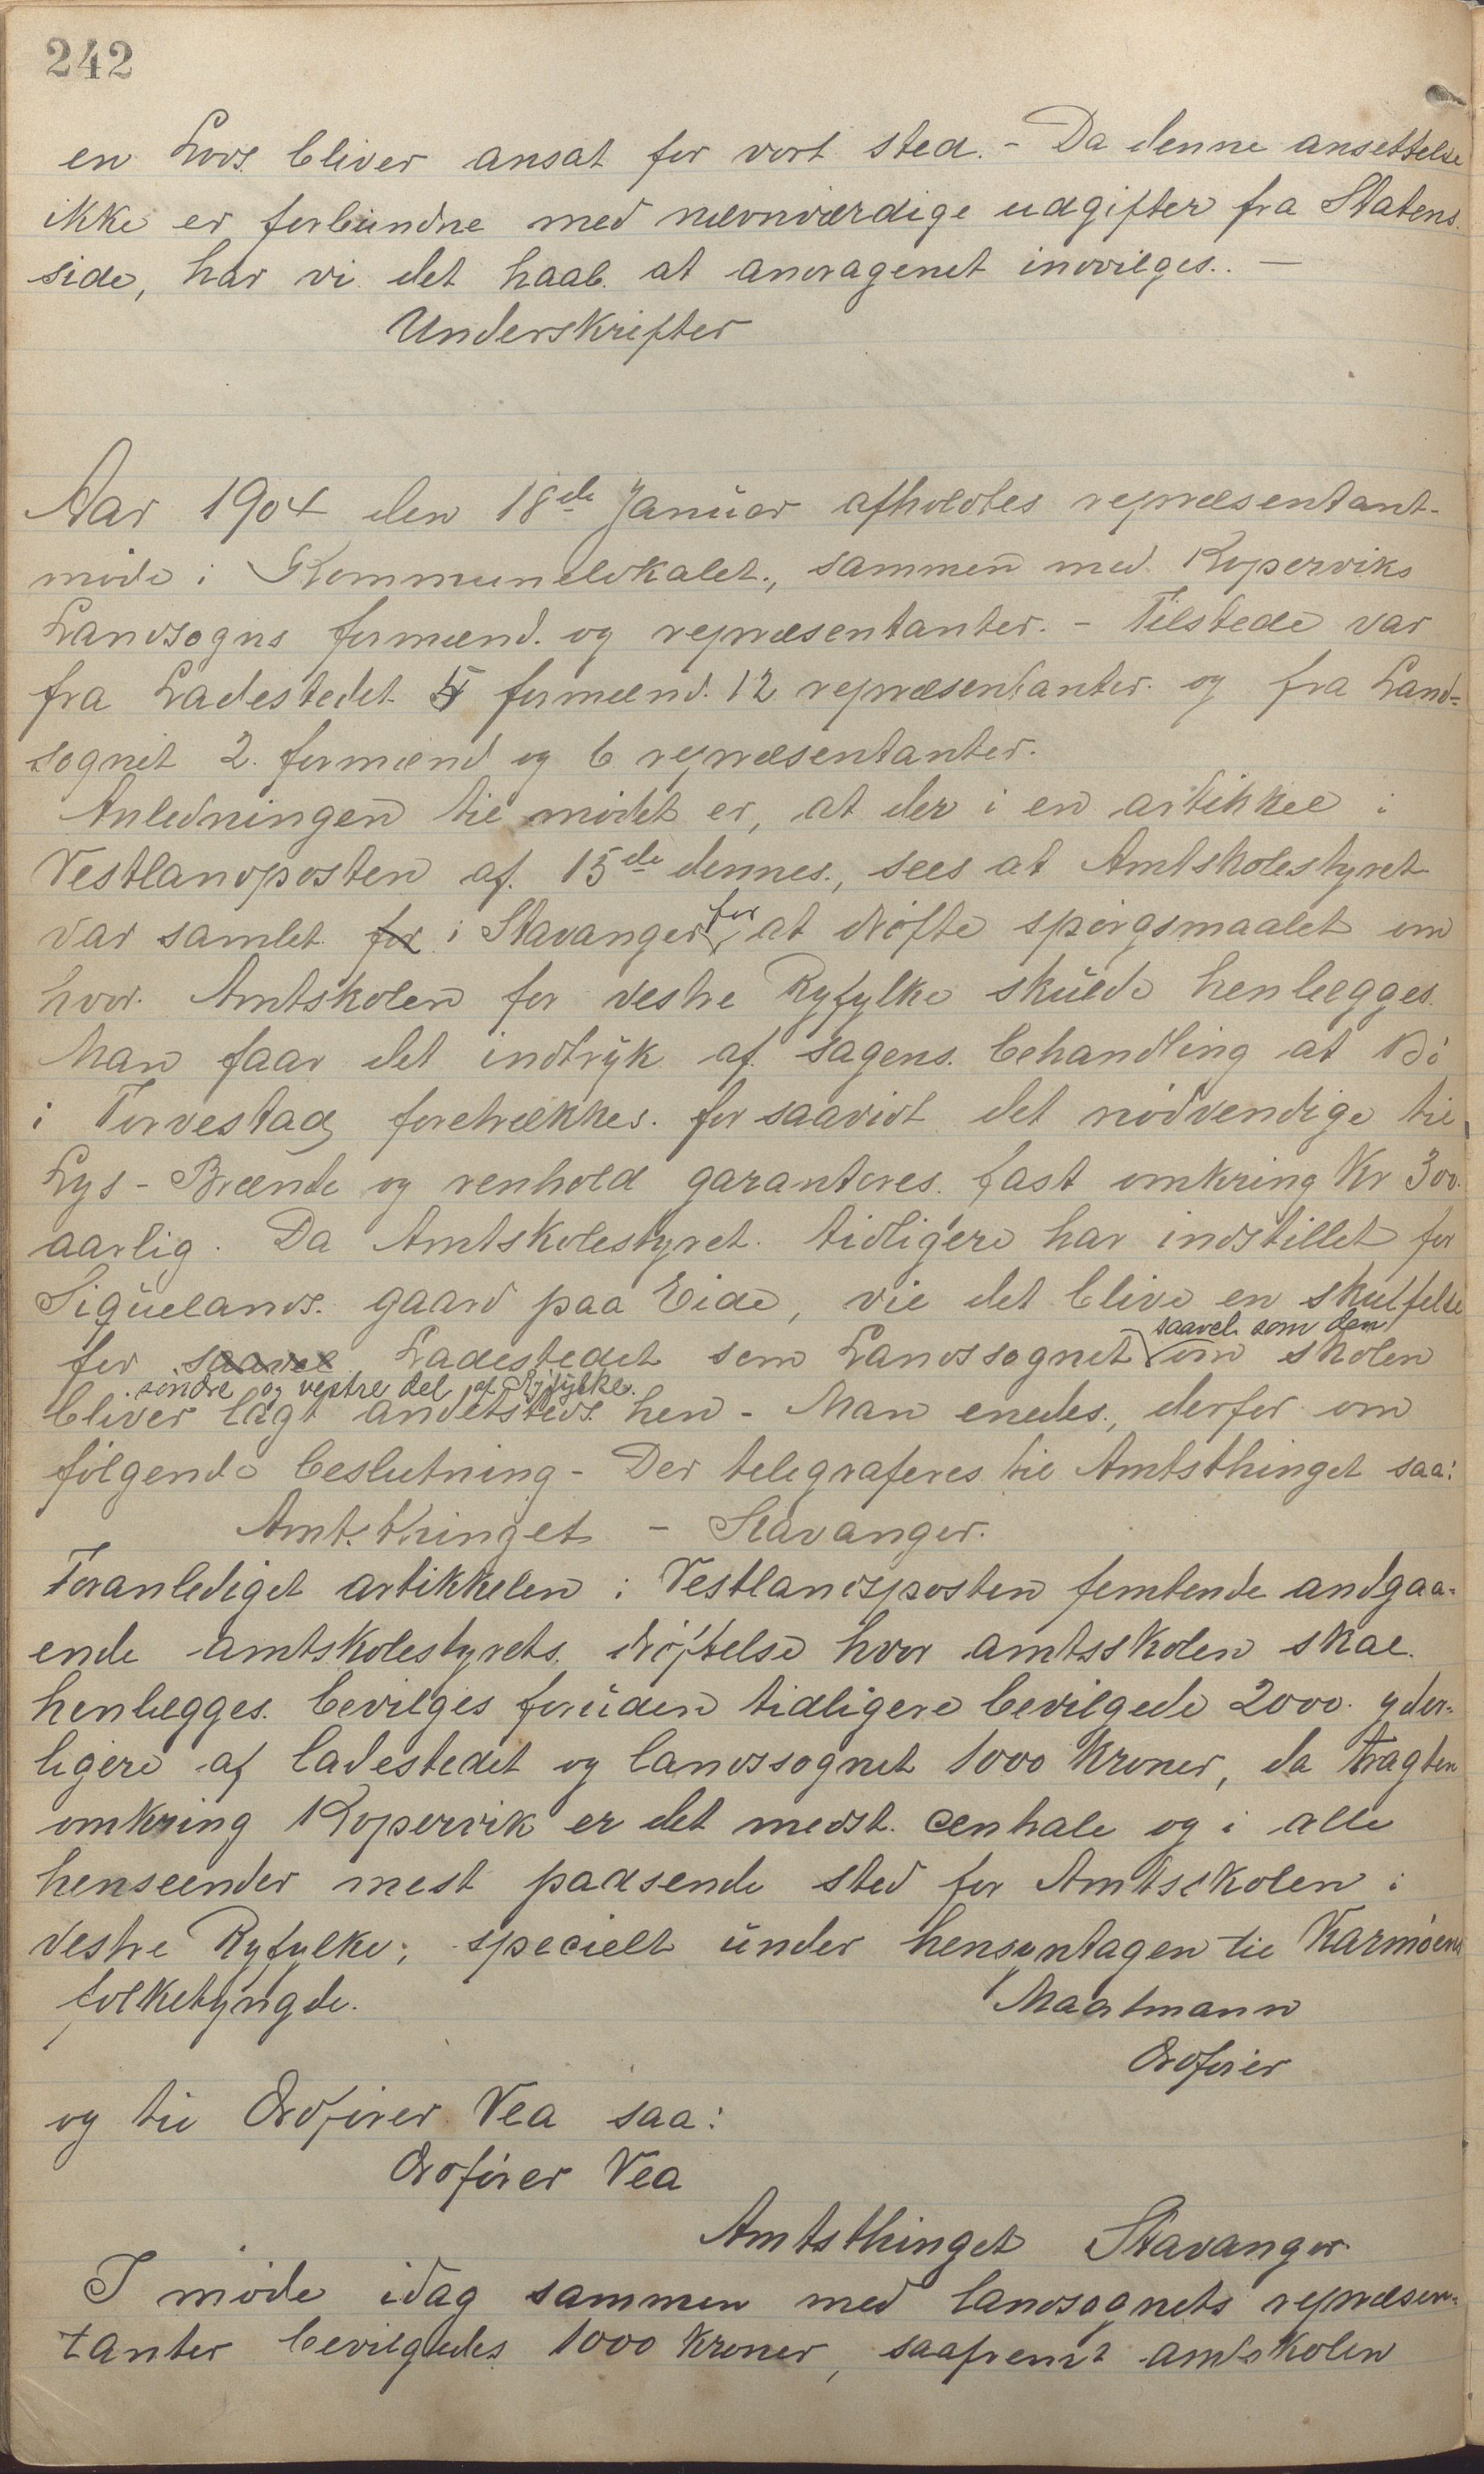 242
en Lods bliver ansat for vort sted. - Da denne ansettelse
ikke er forbundne med nævnværdige udgifter fra Statens
side, har vi det haab at andragenet indvilges. —
Underskrifter
Aar 1904 den 18de Januar afholdtes repræsentant-
møde i Kommunelokalet, sammen med Koperviks
Landsogns formænd og repræsentanter. - Tilstede var
fra Ladestedet 5 formænd 12 repræsentanter og fra Land=
sognet 2 formænd og 6 repræsentanter.
Anledningen til mødet er, at der i en artikkel i
Vestlandposten af 15de dennes, sees at Amtskolestyret
var samlet for i Stavanger for at drøfte spørgsmaalet om
hvor Amtskolen for vestre Ryfylke skulde henlægges.
Man faar det indtryk af sagens behandling at Bø
i Torvestad foretrækkes for saavidt det nødvendige til
Lys - Brænde og renhold garanteres fast omkring Kr 300.
aarlig. Da Amtskolestyret tidligere har indstillet for
Siquelands gaard paa Eide, vil det blive en skuffelse
for saavel Ladestedet som Landssognet saavel som den om skolen
søndre og vestre del af Ryfylke.
bliver lagt andetsteds hen - Man enedes, derfor om
følgende beslutning - Der telegraferes til Amtsthinget saa:
Amtsthinget - Stavanger.
Foranlediget artikkelen i Vestlandsposten femtende andgaa=
ende amtskolestyrets drøftelse hvor amtsskolen skal
henlægges bevilges foruden tidligere bevilgede 2000 yder=
ligere af ladestedet og landssognet 1000 Kroner, da tragten
omkring Kopervik er det medst centrale og i alle
henseender mest passende sted for Amtsskolen i
vestre Ryfylke; specielt under hensyntagen til Karmøens
folketyngde.
Maatmann
Ordfører
og til Ordfører Vea saa:
Ordfører Vea
Amtsthinget Stavanger
I møde idag sammen med landsognets repræsen=
tanter bevilgedes 1000 Kroner, saafremt amtskolen